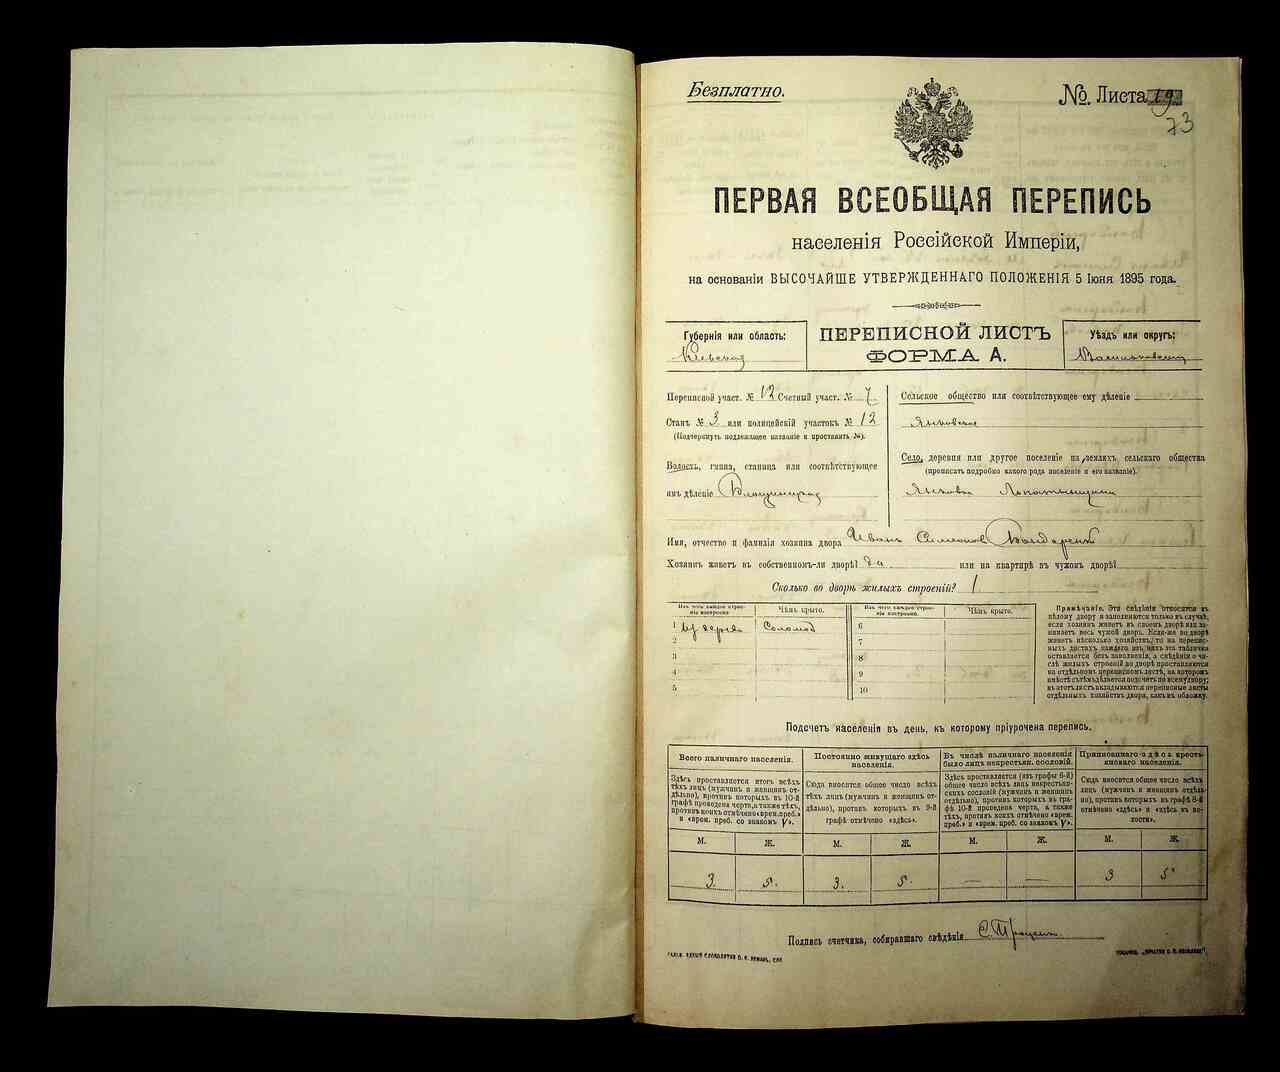 Безплатно.
№. Листа 19
73
ПЕРВАЯ ВСЕОБЩАЯ ПЕРЕПИСЬ
населенія Россійской Имперіи,
на основаніи ВЫСОЧАЙШЕ УТВЕРЖДЕННАГО ПОЛОЖЕНІЯ 5 Іюня 1895 года.
Губернія или область:
Кіевская
ПЕРЕПИСНОЙ ЛИСТЪ
ФОРМА А.
Уѣздъ или округъ:
Васильковскій
Переписной участ. № 12 Счетный участ. № 7
Станъ № 3 или полицейскій участокъ № 12
(Подчеркнуть подлежащее названіе и проставить №).
Волость, гмина, станица или соотвѣтствующее
имъ дѣленіе
Сельское общество или соотвѣтствующее ему дѣленіе
Янковское
Село, деревня или другое поселеніе на земляхъ сельскаго общества
(прописать подробно какого рода поселеніе и его названіе).
Янковка
Имя, отчество и фамилія хозяина двора Иванъ Симеоновъ Бондаренко
Хозяинъ живетъ въ собственномъ-ли дворѣ? да или на квартирѣ въ чужомъ дворѣ?
Сколько во дворѣ жилыхъ строеній? 1
Изъ чего каждое строеніе построено.
Чѣмъ крыто.
Изъ чего каждое строеніе построено.
Чѣмъ крыто.
1 изъ дерева Соломой
2
3
4
5
6
7
8
9
10
Примѣчаніе. Эти свѣдѣнія относятся къ
цѣлому двору и заполняются только въ случаѣ,
если хозяинъ живетъ въ своемъ дворѣ или занимаетъ
весь чужой дворъ. Если-же во дворѣ
живетъ нѣсколько хозяйствъ, то на переписныхъ
листахъ каждаго изъ нихъ эта табличка
оставляется безъ заполненія, а свѣдѣнія о числѣ
жилыхъ строеній во дворѣ проставляются
на отдѣльномъ переписномъ листѣ, на которомъ
вмѣстѣ съ тѣмъ дѣлается подсчетъ по всему двору;
въ этотъ листъ вкладываются переписные листы
отдѣльныхъ хозяйствъ двора, какъ въ обложку.
Подсчетъ населенія въ день, къ которому пріурочена перепись.
Всего наличнаго населенія.
Постоянно живущаго здѣсь населенія.
Въ числѣ наличнаго населенія было лицъ некрестьян. сословій.
Приписаннаго здѣсь крестьянскаго населенія.
Здѣсь проставляется итогъ всѣхъ
тѣхъ лицъ (мужчинъ и женщинъ отдѣльно),
противъ которыхъ въ 10-й
графѣ проведена черта, а также тѣхъ,
противъ коихъ отмѣчено «врем. преб.»
и «врем. преб. со знакомъ V».
Сюда вносится общее число всѣхъ
тѣхъ лицъ (мужчинъ и женщинъ отдѣльно),
противъ которыхъ въ 9-й
графѣ отмѣчено «здѣсь».
Здѣсь проставляется (изъ графы 6-й)
общее число всѣхъ лицъ некрестьянскихъ
сословій (мужчинъ и женщинъ
отдѣльно), противъ которыхъ въ графѣ
10-й проведена черта, а также
тѣхъ, противъ коихъ отмѣчено «врем.
преб.» и «врем. преб. со знакомъ V».
Сюда вносится общее число всѣхъ
лицъ (мужчинъ и женщинъ отдѣльно),
противъ которыхъ въ графѣ 8-й
отмѣчено «здѣсь» и «здѣсь въ волости».
М. Ж. М. Ж. М. Ж. М. Ж.
3. 5. 3. 5. — — 3 5
Подпись счетчика, собиравшаго свѣдѣнія